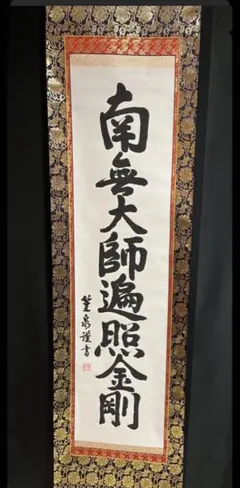 南無大師遍照金剛
泉謹書